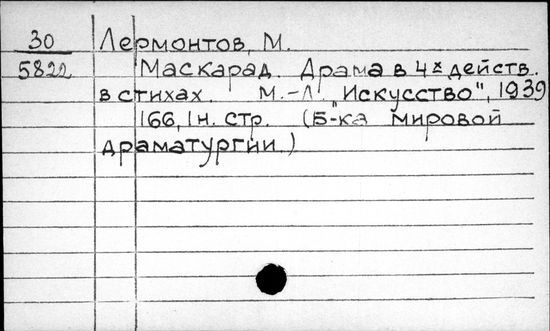 30 Лермонтов, М.
5822 Маскарад. Драма в 4х действ.
в стихах. М.-Л. "Искусство", 1939
166, 1н. стр. (Б-ка мировой
драматургии.)